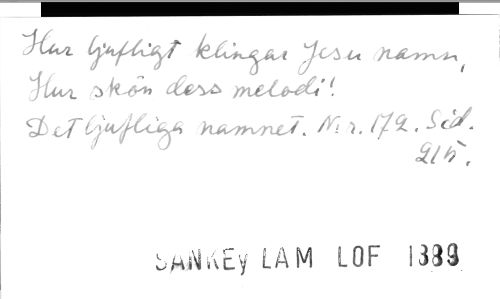 Hur ljufligt klingar Jesu namn,
Hur skön dess melodi!
Det ljufliga namnet. N:r. 172. Sid.
215.
SANKEY LAM LOF 1889